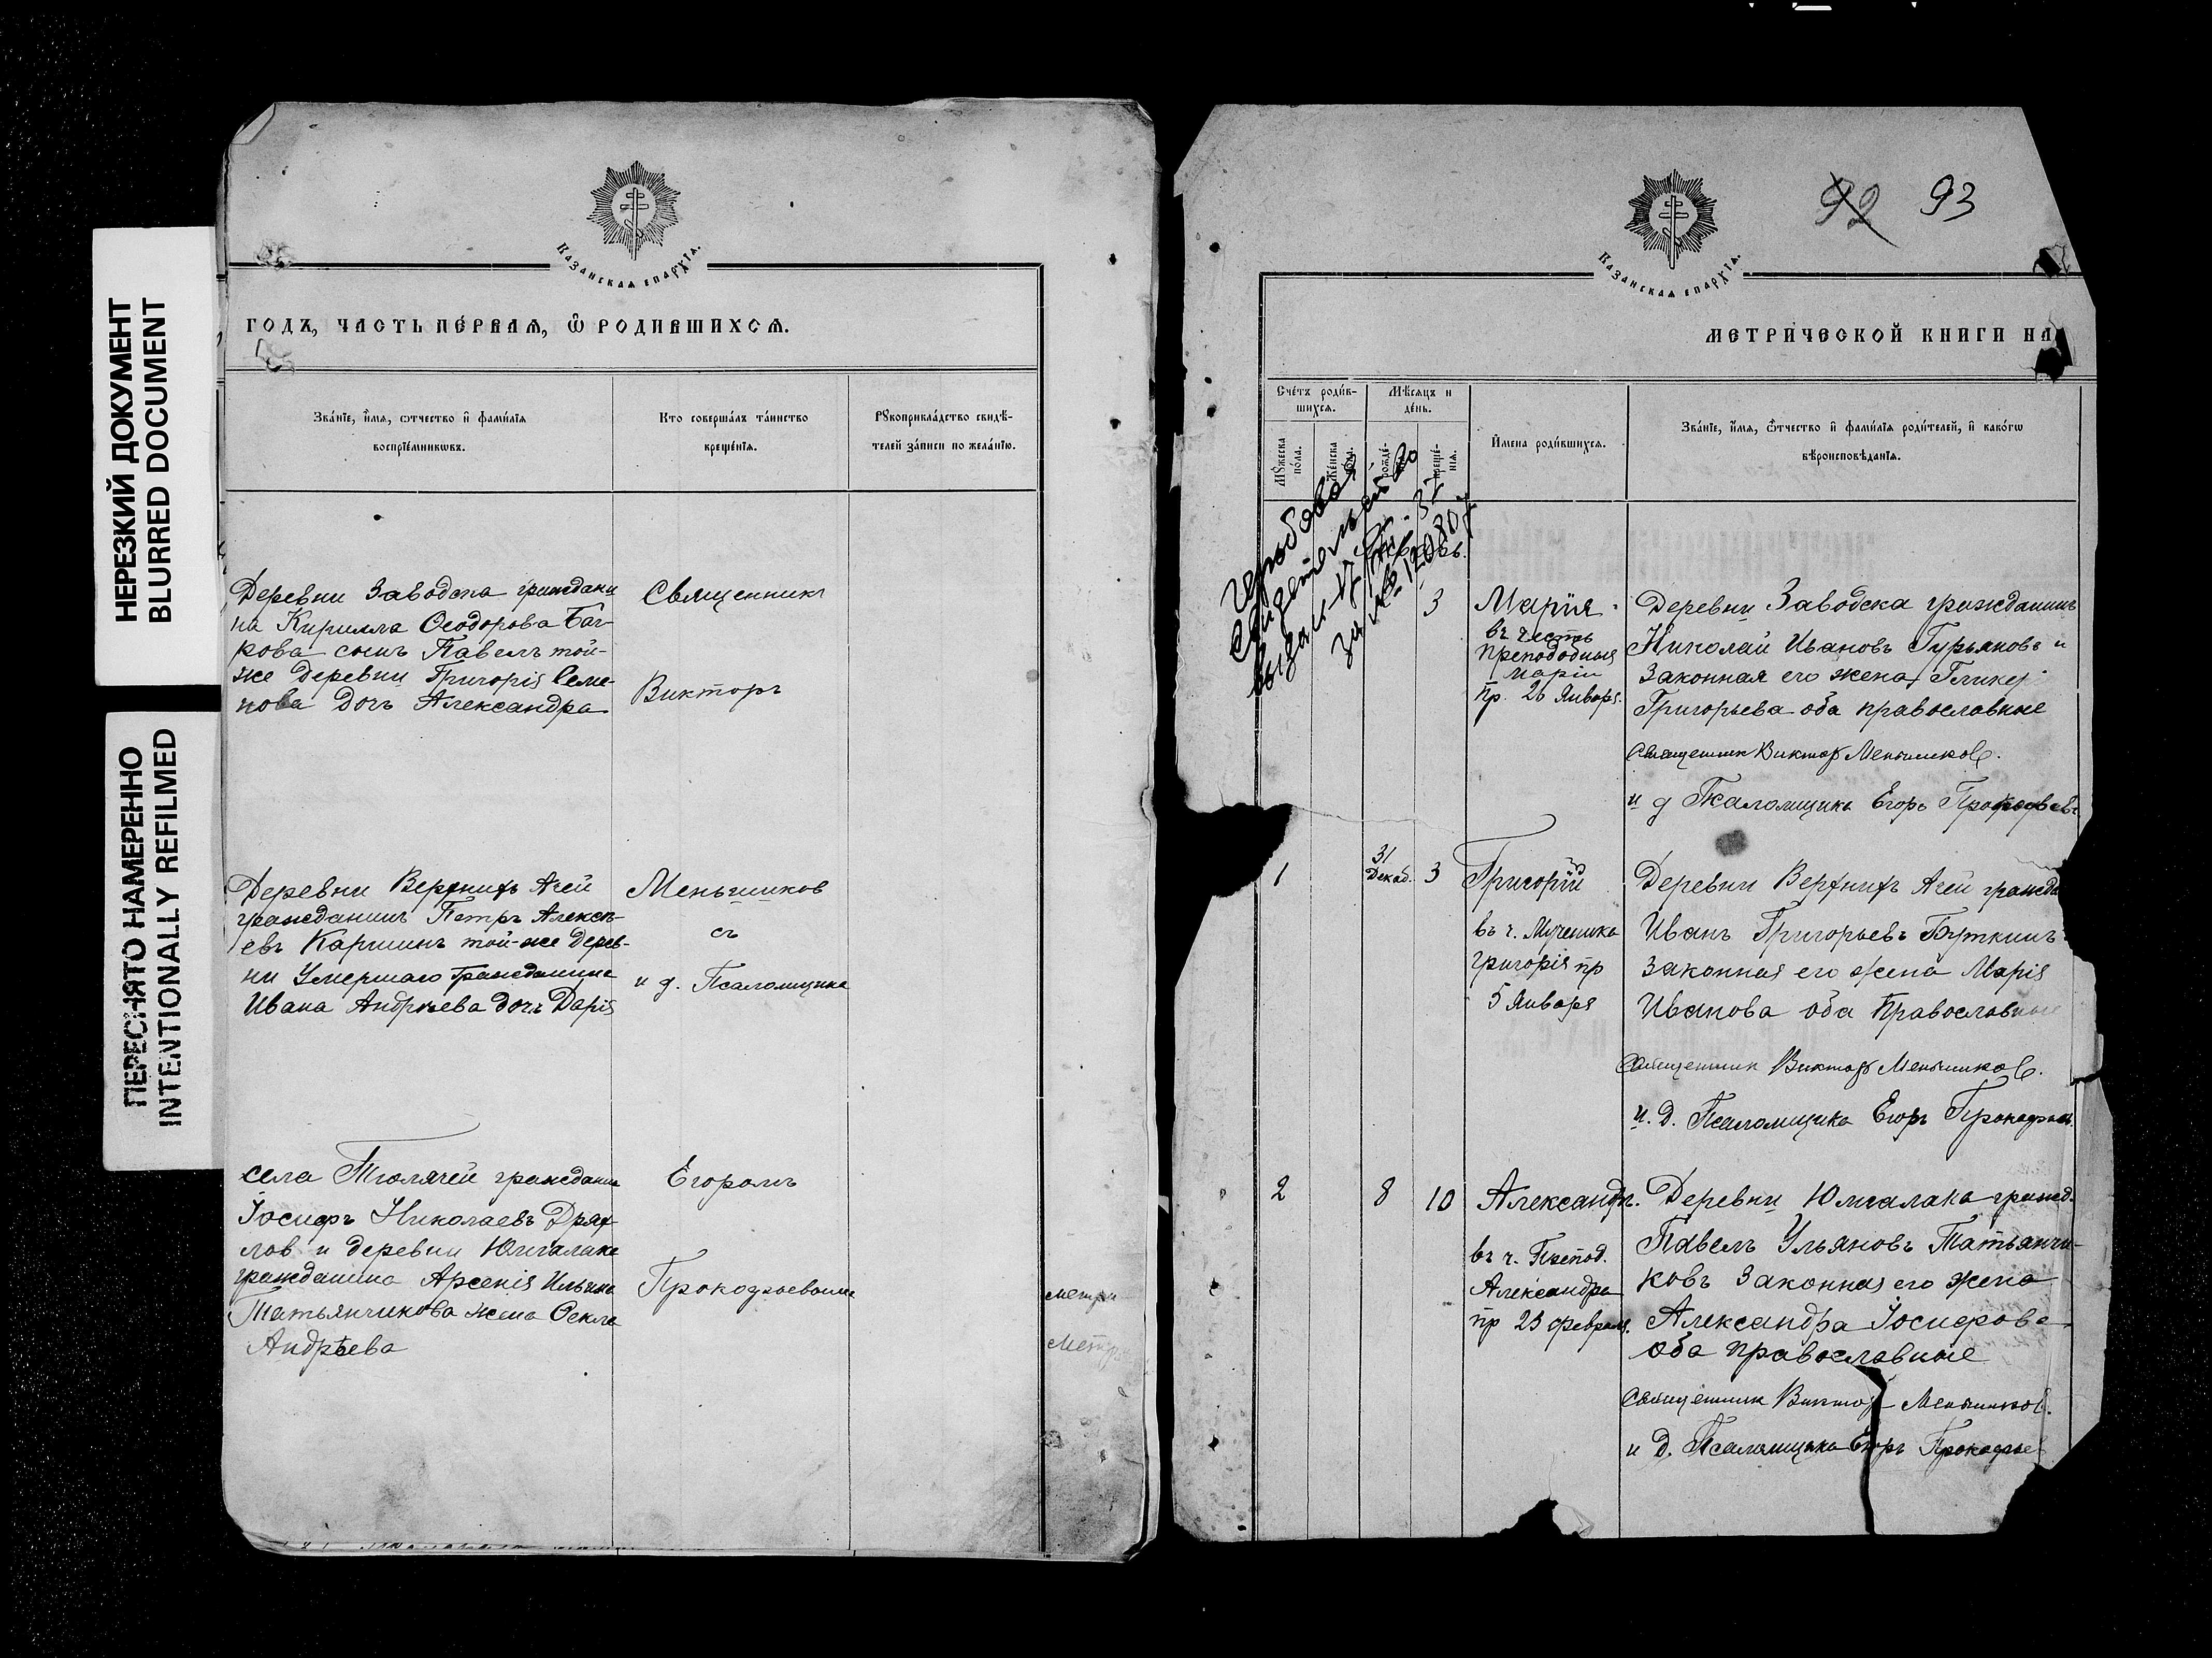 НЕРЕЗКИЙ ДОКУМЕНТ
BLURRED DOCUMENT
ПЕРЕСНЯТО НАМЕРЕННО
INTENTIONALLY REFILMED
Казанская епархїа.
годъ, часть пе́рвая, ѿ родившихся.
Зва́нїе, и҆́мя, ѻтчество и҆ фами́лїя
воспрїе́мникѡвъ.
Кто соверша́лъ та́инство
креще́нїя.
Рꙋкоприкла́дство свидѣ́-
телей за́писи по жела́нїю.
Деревни Заводска граждани
на Кирилла Ѳеодорова Баг-
рова сынъ Павелъ той-
же деревни Григорія Семе-
нова дочь Александра
Священникъ
Викторъ
Деревни Верхнихъ Ачей
гражданинъ Петръ Алексѣ-
евъ Каршинъ той-же дерев-
ни умершаго гражданина
Ивана Андреева дочь Дарія
Меньшиков
съ
и д. Псаломщика
села Тюлячей гражданин
Іосифъ Николаевъ Дрях-
лов и деревни Юмгалака
гражданина Арсенія Ильина
Татьянчикова жена Ѳекла
Андрѣева
Егоромъ
Прокофьевымъ
метри
метри
92 93
Казанская епархїа.
метрической книги на
Сче́тъ роди́в-
шихся.
Мѣ́сяцъ и
де́нь.
Мꙋ́жеска
по́ла.
Же́нска
рожде́-
креще́-
нїя.
И҆мена роди́вшихся.
Зва́нїе, и҆́мя, ѻ҆́тчество и҆ фами́лїя роди́телей, и҆ како́гѡ
вѣроисповѣ́данїя.
за №
3
Марія
въ честь
преподобныя
Маріи
пр. 26 Января.
Деревни Заводска гражданинъ
Николай Ивановъ Гурьяновъ и
законная его жена Гликер
Григорьева оба православные
Священник Виктор Меньшиков.
и д Псаломщика Егоръ Прокофьевъ
1
31
Декаб.
3
Григорій
въ ч. Мученика
Григорія пр
5 Января
Деревни Верхнихъ Ачей гражда
Иванъ Григорьевъ Буткинъ
законная его жена Марія
Иванова оба Православные
Священник Виктор Меньшиков.
и. д. Псаломщика Егоръ Прокофьев.
2
8
10
Александръ.
въ ч. Препод.
Александра
пр 23 февраля.
Деревни Юмгалака гражд.
Павелъ Ульяновъ Татьянчи-
ковъ законная его жена
Александра Іосифова
оба православные
Священник Виктор Меньшиков.
и д. Псаломщика Егоръ Прокофьев